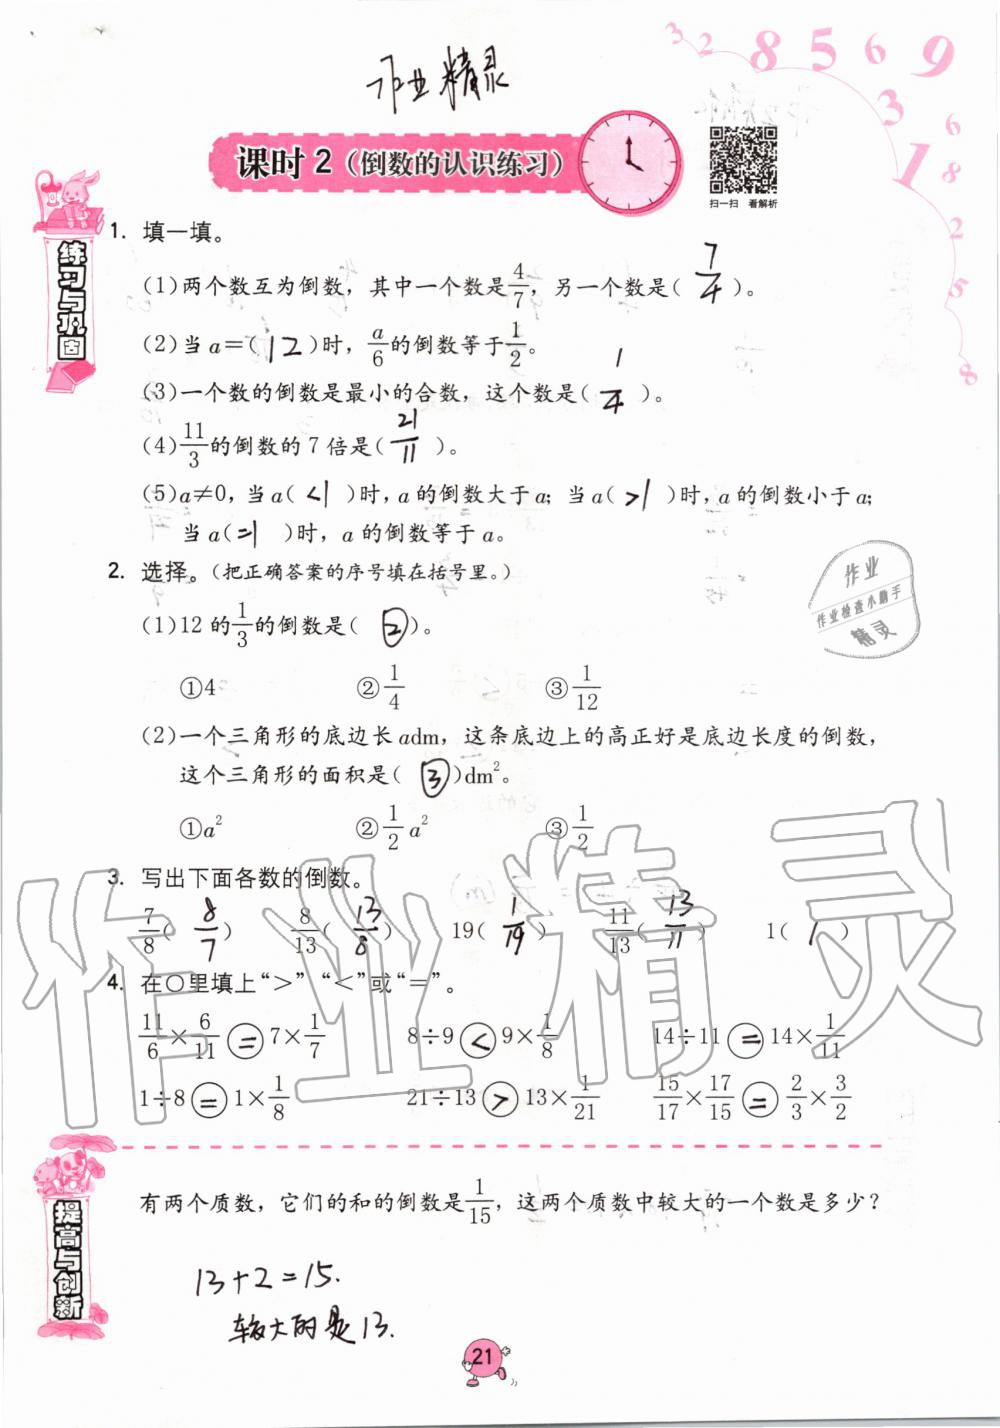 3 2 8 5 6 9
3 6 1 8 2 5 8
作业精灵
课时2(倒数的认识练习)
扫一扫 看解析
练习与巩固
1. 填一填。
(1)两个数互为倒数，其中一个数是4/7，另一个数是( 7/4 )。
(2)当a=( 12 )时，a/6的倒数等于1/2。
(3)一个数的倒数是最小的合数，这个数是( 1/4 )。
(4)11/3的倒数的7倍是( 21/11 )。
(5)a≠0，当a( <1 )时，a的倒数大于a；当a( >1 )时，a的倒数小于a；
当a( =1 )时，a的倒数等于a。
2. 选择。(把正确答案的序号填在括号里。)
(1)12的1/3的倒数是( ② )。
①4 ②1/4 ③1/12
(2)一个三角形的底边长adm，这条底边上的高正好是底边长度的倒数，
这个三角形的面积是( ③ )dm²。
①a² ②1/2 a² ③1/2
3. 写出下面各数的倒数。
7/8( 8/7 ) 8/13( 13/8 ) 19( 1/19 ) 11/13( 13/11 ) 1( 1 )
4. 在○里填上“>”“<”或“=”。
11/6×6/11 = 7×1/7 8÷9 < 9×1/8 14÷11 = 14×1/11
1÷8 = 1×1/8 21÷13 > 13×1/21 15/17×17/15 = 2/3×3/2
作业
作业检查小助手
精灵
作业精灵
提高与创新
有两个质数，它们的和的倒数是1/15，这两个质数中较大的一个数是多少？
13+2=15.
较大的是13.
21